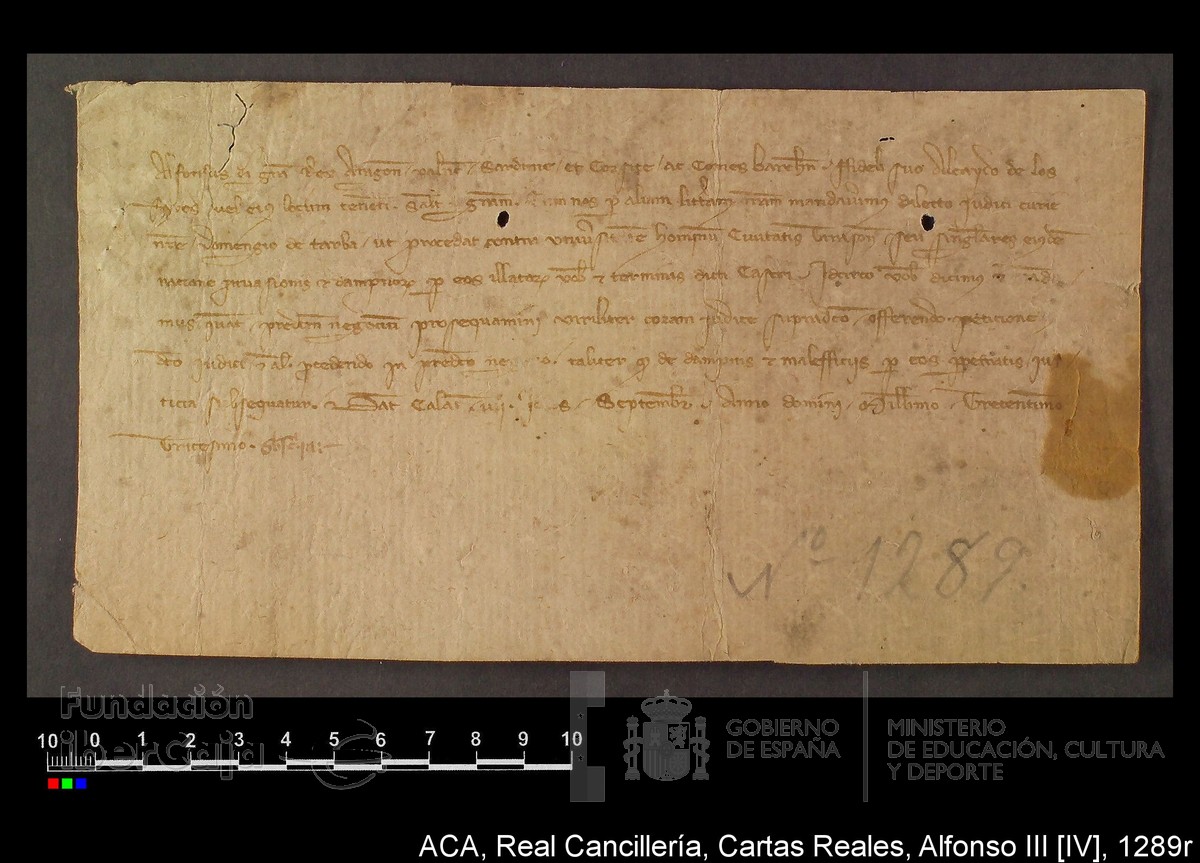 Alfonsus di gra Rex Aragon Valen Sardinie et Corsice ac Comes barchn fideli suo Alcaydo de los
vel eius locum tenenti Salt gram Cum nos p aliam litteram nram mandaverimus dilecto judici curie
nre domengio de tarba ut procedat contra universitatem hominum Civitatis seu singlares eiusde
racione invasionis et dampnor p eos illator vob et terminis dicti Castri Idcirco vob dicimus et
mus quat predcm negocium prosequamini viriliter coram judice supradco offerendo peticione
dco judici et al procedendo in predco taliter qd de dampnis et maleficiis p eos ppetratis jus
ticia subsequatur Dat Septembr Anno domini Millimo Trecentimo
Tricesimo
Nº 1289
Fundación
iberCaja
10 0 1 2 3 4 5 6 7 8 9 10
GOBIERNO
DE ESPAÑA
MINISTERIO
DE EDUCACIÓN, CULTURA
Y DEPORTE
ACA, Real Cancillería, Cartas Reales, Alfonso III [IV], 1289r